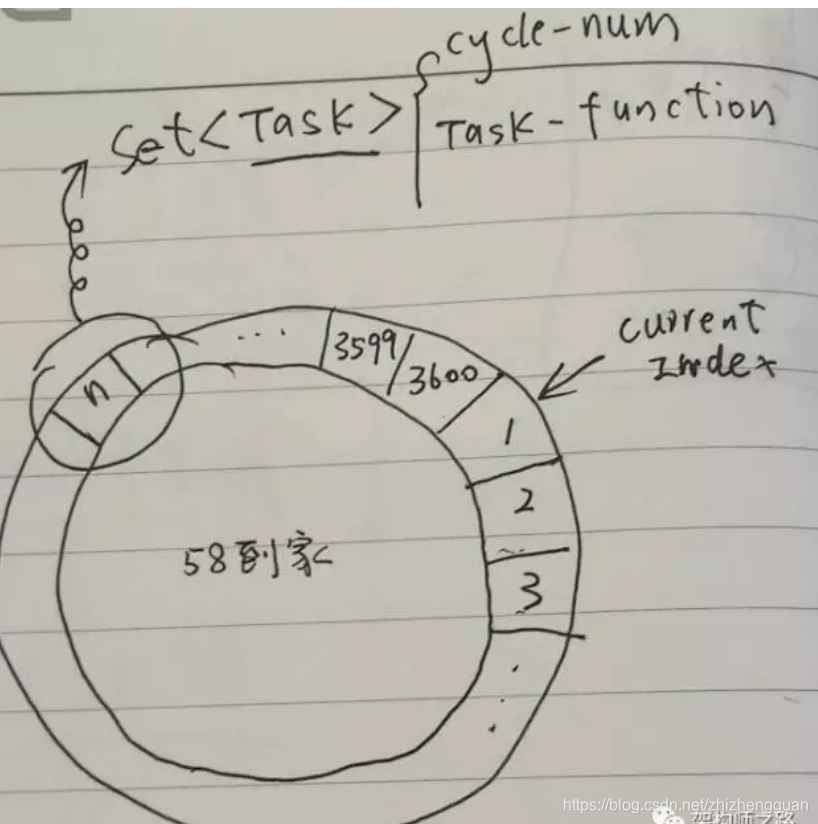 cycle-num
Set<Task>
Task-function
current
Index
...
3599
3600
n
1
2
3
58到家
https://blog.csdn.net/zhizhengguan
架构师之路